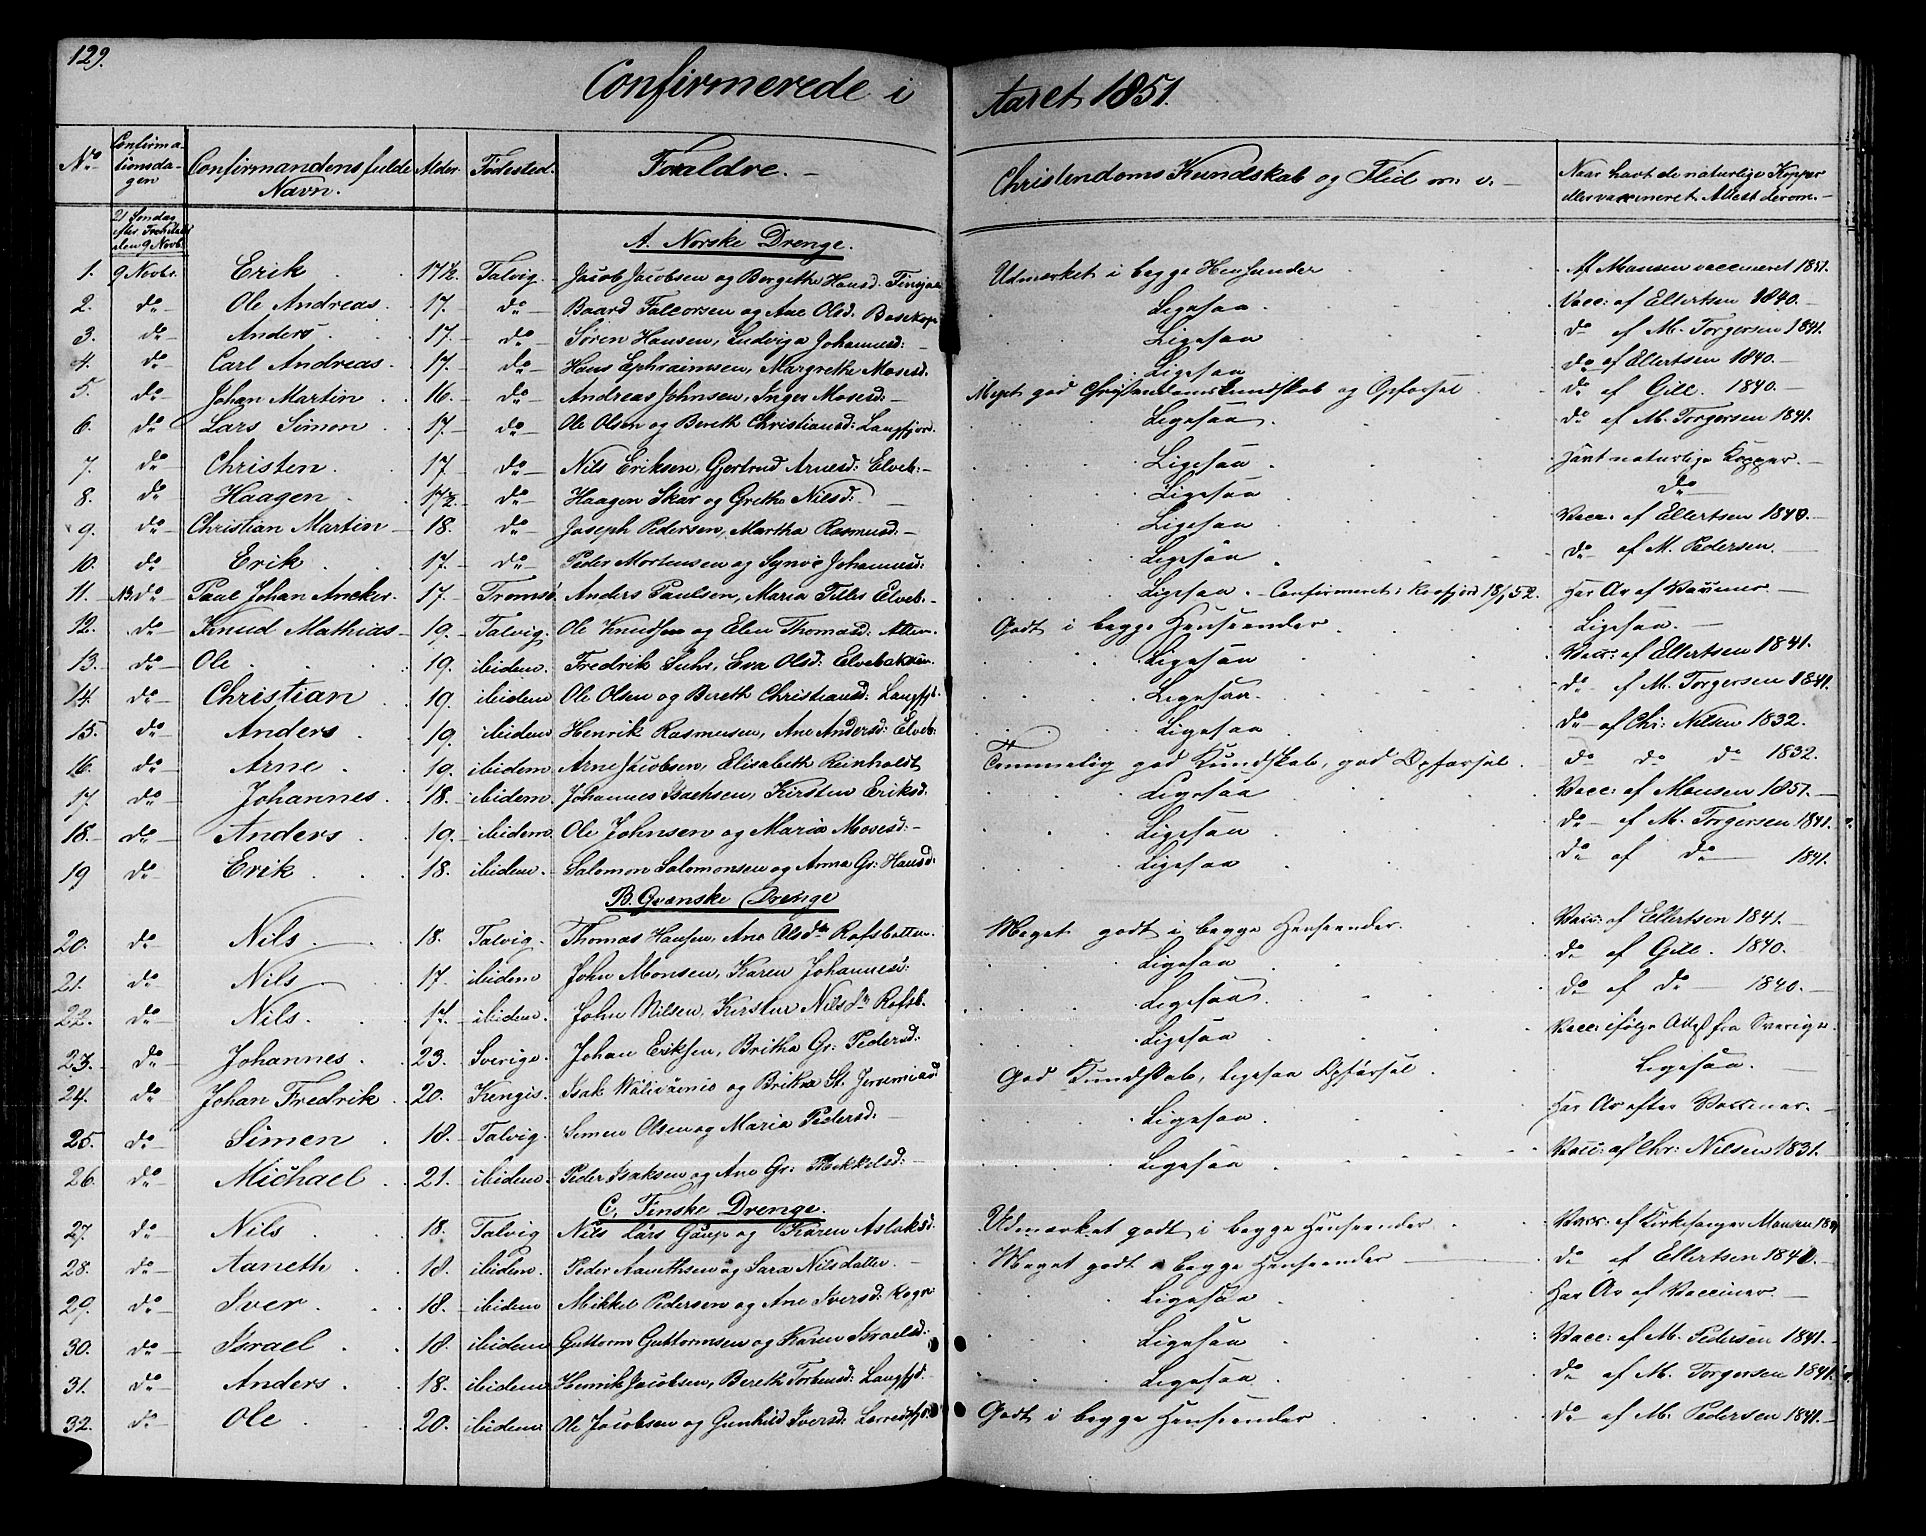 129.
Confirmerede i Aaret 1851.
No Confirmationsdagen Confirmandens fulde Navn. Alder Fødested. Forældre. Christendoms Kundskab og Flid m. v. Naar havt de naturlige Kopper eller vaccineret. Attest derom.
21 Søndag efter Trefoldigh. den 9 Novbr.
A. Norske Drenge.
1. 9 Novbr. Erik 17½ Talvig. Jacob Jacobsen og Bergethe Hansd: Udmærket i begge Henseender Af Monsen vaccineret 1851.
2. do Ole Andreas. 17. do Baard Falcorsen og Ane Olsd. Bosekop Ligesaa. Vacc: af Ellertsen 1840.
3. do Anders 17. do Søren Hansen, Ludviga Johannesd: Ligesaa do af M. Torgersen 1841.
4. do Carl Andreas. 17. do Hans Ephraimsen, Margrethe Mosesd. Ligesaa do af Ellertsen 1840.
5. do Johan Martin 16. do Andreas Johnsen, Inger Mosesd: Meget god Christendomskundskab og Opførsel do af Gill. 1840.
6. do Lars Simon 17. do Ole Olsen og Bereth Christiansd: Langfjord. Ligesaa. do af M. Torgersen 1841.
7. do Christen. 17. do Nils Eriksen, Gjertrud Arnesd: Elveb: Ligesaa. havt naturlige Kopper.
8. do Haagen 17½. do Haagen Skar og Grethe Nilsd: Ligesaa do
9. do Christian Martin 18. do Joseph Pedersen, Martha Rasmusd. Ligesaa Vacc: af Ellertsen 1840.
10. do Erik 17. do Peder Mortensen og Synøe Johannesd: Ligesaa do af M. Pedersen.
11. NB. do Paul Johan Ancker. 17. Tromsø. Anders Paulsen, Maria Elveb: Ligesaa. Confirmeret i Kaafjord 18/1 52. Har Ar af Vacciner.
12. do Knud Mathias 19. Talvig. Ole Knudsen og Elen Thomasd. Alten. Godt i begge Henseender. Ligesaa.
13. do Ole 19. ibidem. Fredrik Suhr, Eva Olsd: Elvebakken. Ligesaa Vacc: af Ellertsen 1841.
14. do Christian 19. ibidem Ole Olsen og Bereth Christiansd. Langfj. Ligesaa. do af M. Torgersen 1841.
15. do Anders 19. ibidem Henrik Rasmussen, Ane Andersd: Elveb: Ligesaa do af Chr: Nilsen 1832.
16. do Arne 19. ibidem. Arne Jacobsen, Elisabeth Reinholdt Temmelig god Kundskab, god Opførsel do do do 1832.
17. do Johannes. 18. ibidem. Johannes Isachsen, Kirsten Eriksd. Ligesaa Vacc: af Monsen 1851.
18. do Anders. 19. ibidem. Ole Johnsen og Maria Mosesd: Ligesaa do af M. Torgersen 1841.
19 do Erik 18. ibidem. Salomon Salomonsen og Anna Gr: Hansd: Ligesaa do af do 1841.
B. Qvænske Drenge
20. do Nils. 18. Talvig. Thomas Hansen, Ane Olsdr Rafsbotten. Meget godt i begge Henseender. Vacc: af Ellertsen 1841.
21. do Nils 17. ibidem John Monsen, Karen Johannesd: Ligesaa do af Gill. 1840.
22. do Nils. 17. ibidem. John Nilsen, Kirsten Nilsdr Rafsb. Ligesaa. do af do 1840.
23. do Johannes. 23. Sverige. Johan Eriksen, Britha Gr: Pedersd: Ligesaa Vacc: ifølge Attest fra Sverige.
24. do Johan Fredrik 20. Kengis. Isak og Brita St. Jeremiasd God Kundskab, ligesaa Opførsel Ligesaa.
25. do Simen 18. Talvig. Simen Olsen og Maria Pedersd: Ligesaa. Har Ar efter Vacciner.
26. do Michael 21. ibidem. Peder Isaksen og Ane Gr: Mikkelsd: Ligesaa Vacc: af Chr: Nilsen 1831.
C. Finske Drenge.
27. do Nils 18. Talvig Nils Lars Gaup og Karen Aslaksd: Udmærket godt i begge Henseender Vacc: af Kirkesanger Monsen
28. do Aaneth 18. ibidem. Peder Aanethsen og Sara Nilsdatter. Meget godt i begge Henseender do af Ellertsen 1840.
29. do Iver 18. ibidem Mikkel Pedersen og Ane Iversd: Ligesaa. Har Ar af Vacciner.
30. do Israel 18. ibidem Guttorm Guttormsen og Karen Israelsd: Ligesaa Vacc: af M. Pedersen 1841.
31. do Anders 18. ibidem Henrik Jacobsen, Bereth Torbensd: Langfjd: Ligesaa do af M. Torgersen 1841.
32. do Ole 20. ibidem Ole Jacobsen og Gunhild Iversd: Godt i begge Henseender do af M. Pedersen 1841.